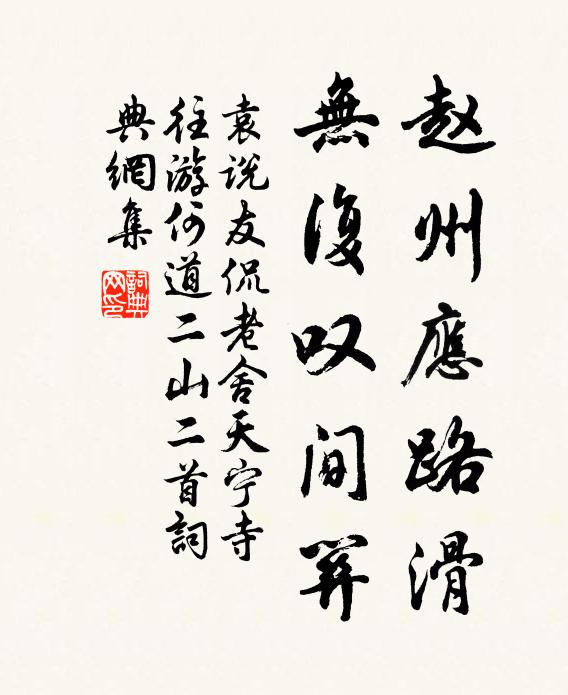 赵州應路滑
無復叹间关
袁说友侃老舍天宁寺
往游何道二山二首詞
典網集
詞典网印